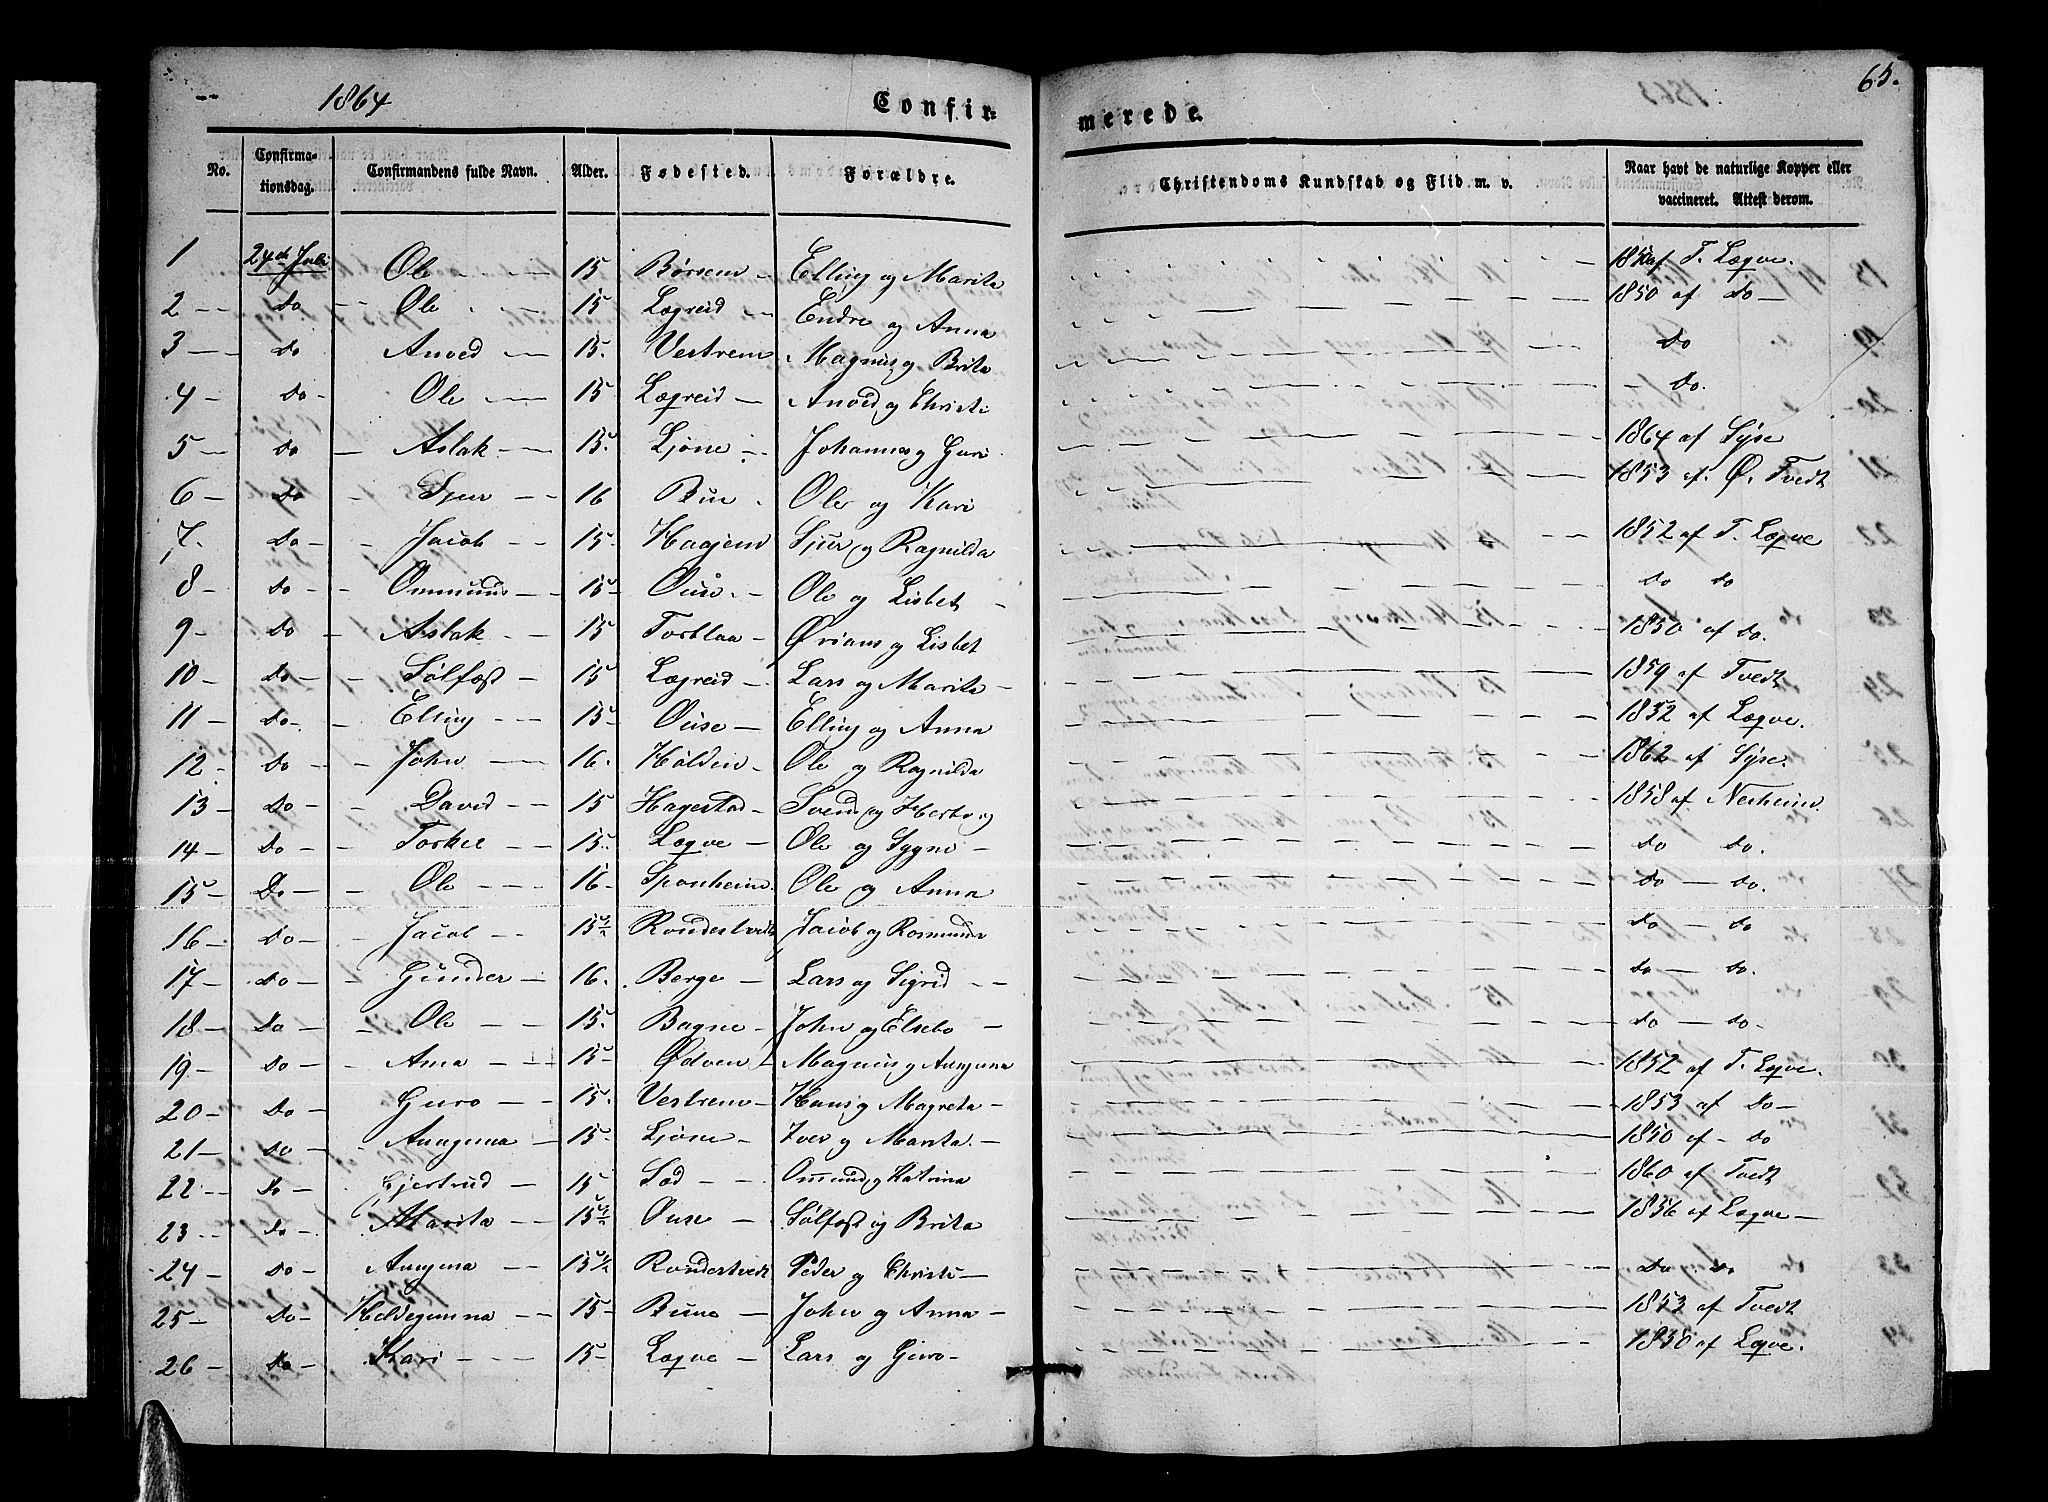 1864
Confir=
merede.
65.
No.
Confirma-
tionsdag.
Confirmandens fulde Navn.
Alder.
Fødested.
Forældre.
Christendoms Kundskab og Flid m. v.
Naar havt de naturlige Kopper eller
vaccineret. Attest derom.
1 24de Juli Ole 15 Børsem Elling og Marita af T. Lægve.
2 Do Ole 15 Lægreid Endre og Anna 1850 af Do
3 Do Anved 15. Vestrem Magnus og Brita Do
4 Do Ole 15 Lægreid Anved og Christi Do.
5 Do Aslak 15. Ljøne Johannes og Guri 1864 af Syse
6 Do Sjur 16 Bue Ole og Kari 1853 af Ø. Tvedt
7 Do Jacob 15. Haajem Sjur og Ragnilda 1852 af T. Lægve
8 Do Ommund 15 Ouse Ole og Lisbet Do Do
9 Do Aslak 15 Torblaa Ørians og Lisbet 1850 af Do.
10 Do Sølfæst 15 Lægreid Lars og Marita 1859 af Tvedt
11 Do Elling 15 Ouse Elling og Anna 1852 af Lægve.
12 Do John 16. Hølden Ole og Ragnilda 1862 af Syse.
13 Do David 15 Hagestad Svend og Herborg 1858 af Nesheim.
14 Do Torkel 15. Lægve Ole og Sygni Do Do.
15 Do Ole 16 Sponheim Ole og Anna Do Do.
16 Do Jacob 15 1/2 Rondestvedt Jacob og Rosmunda Do Do
17 Do Gunder 16. Berge Lars og Sigrid Do Do.
18 Do Ole 15. Bagne John og Elsebo Do Do
19 Do Anna 15 Ødven Magnus og Aungunna 1852 af T. Lægve.
20 Do Guro 15. Vestrem Hans og Magreta 1853 af Do
21 Do Aungunna 15 Ljøne Iver og Marita 1850 af Do
22 Do Gjertrud 15 Sad Ommund og Katrina 1860 af Tvedt
23 Do Marita 15 1/2 Ouse Sølfæst og Brita 1856 af Lægve
24 Do Aungunna 15 1/2 Rondestvedt Peder og Christi Do Do
25 Do Heldegunna 15 Bune John og Anna 1853 af Tvedt
26 Do Kari 15 Lægve Lars og Guro 1850 af Lægve.